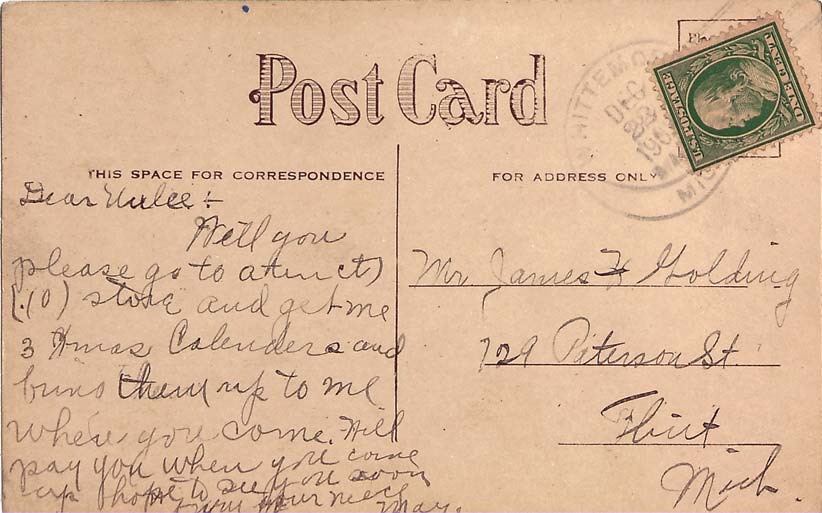 Post Card
THIS SPACE FOR CORRESPONDENCE
FOR ADDRESS ONLY
Dear :-
Will you
please go to a ten ct)
(.10) store and get me
3 Xmas Calenders and
bring them up to me
when you come. Will
pay you when you come
up hope to see you soon
from your niece
May.
Mr James H Golding
729 Peterson St.
Flint
Mich.
WHITTEMORE
DEC
MICH
U.S. POSTAGE
ONE CENT